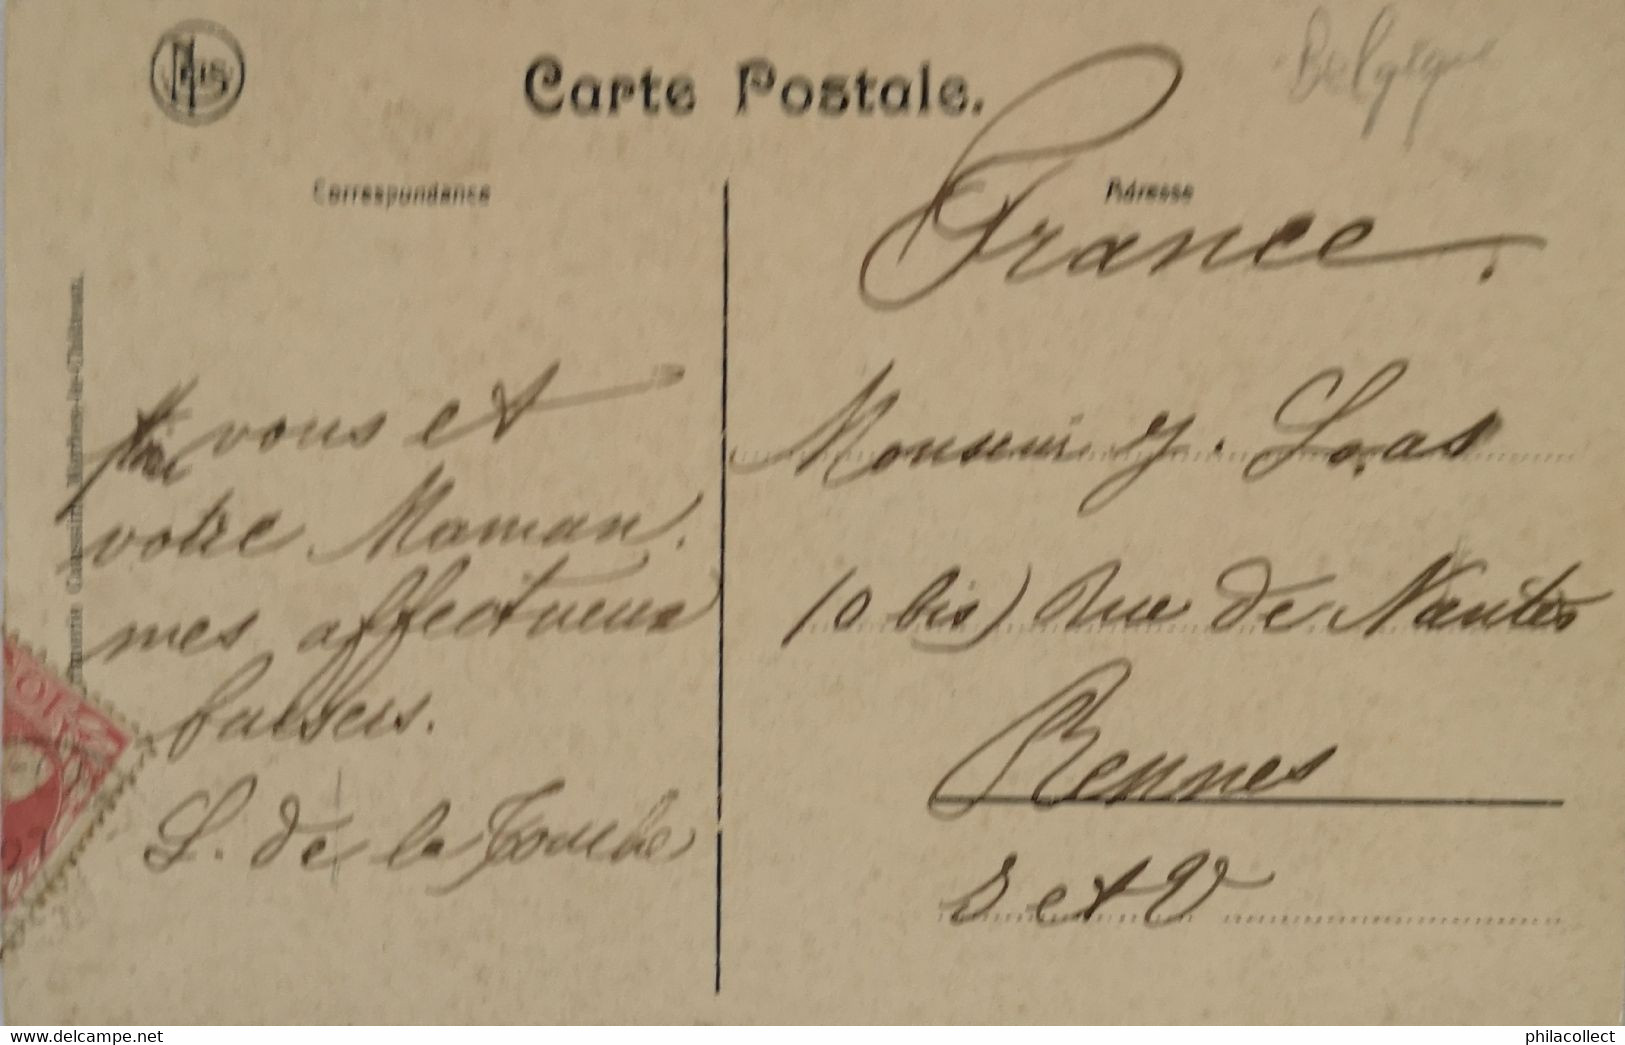 Nels
Carte Postale.
Belgique
Correspondance
Adresse
France.
vous et
votre Maman.
mes affectueux
baisers.
L. de la Touche
Monsieur Y. Loas
10 bis) Rue de Nantes
Rennes
I et V
Marbay-le-Château.
10
www.delcampe.net
philacollect